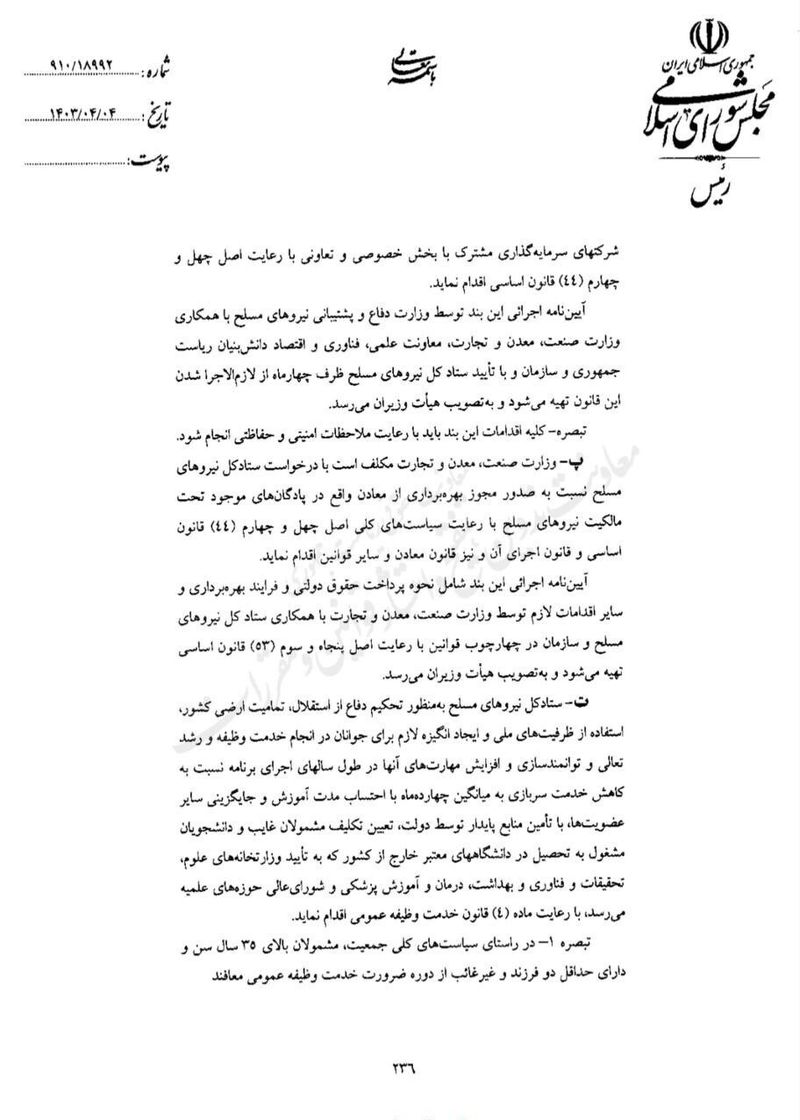 جمهوری اسلامی ایران
مجلس شورای اسلامی
رئیس
باسمه تعالی
شماره: ۹۱۰/۱۸۹۹۲
تاریخ: ۱۴۰۳/۰۴/۰۴
پیوست:
شرکتهای سرمایه‌گذاری مشترک با بخش خصوصی و تعاونی با رعایت اصل چهل و
چهارم (٤٤) قانون اساسی اقدام نماید.
آیین‌نامه اجرائی این بند توسط وزارت دفاع و پشتیبانی نیروهای مسلح با همکاری
وزارت صنعت، معدن و تجارت، معاونت علمی، فناوری و اقتصاد دانش‌بنیان ریاست
جمهوری و سازمان و با تأیید ستاد کل نیروهای مسلح ظرف چهارماه از لازم‌الاجرا شدن
این قانون تهیه می‌شود و به‌تصویب هیأت وزیران می‌رسد.
تبصره- کلیه اقدامات این بند باید با رعایت ملاحظات امنیتی و حفاظتی انجام شود.
پ- وزارت صنعت، معدن و تجارت مکلف است با درخواست ستادکل نیروهای
مسلح نسبت به صدور مجوز بهره‌برداری از معادن واقع در پادگان‌های موجود تحت
مالکیت نیروهای مسلح با رعایت سیاست‌های کلی اصل چهل و چهارم (٤٤) قانون
اساسی و قانون اجرای آن و نیز قانون معادن و سایر قوانین اقدام نماید.
آیین‌نامه اجرائی این بند شامل نحوه پرداخت حقوق دولتی و فرایند بهره‌برداری و
سایر اقدامات لازم توسط وزارت صنعت، معدن و تجارت با همکاری ستاد کل نیروهای
مسلح و سازمان در چهارچوب قوانین با رعایت اصل پنجاه و سوم (۵۳) قانون اساسی
تهیه می‌شود و به‌تصویب هیأت وزیران می‌رسد.
ت- ستادکل نیروهای مسلح به‌منظور تحکیم دفاع از استقلال، تمامیت ارضی کشور،
استفاده از ظرفیت‌های ملی و ایجاد انگیزه لازم برای جوانان در انجام خدمت وظیفه و رشد
تعالی و توانمندسازی و افزایش مهارت‌های آنها در طول سالهای اجرای برنامه نسبت به
کاهش خدمت سربازی به میانگین چهارده‌ماه با احتساب مدت آموزش و جایگزینی سایر
عضویت‌ها، با تأمین منابع پایدار توسط دولت، تعیین تکلیف مشمولان غایب و دانشجویان
مشغول به تحصیل در دانشگاههای معتبر خارج از کشور که به تأیید وزارتخانه‌های علوم،
تحقیقات و فناوری و بهداشت، درمان و آموزش پزشکی و شورای‌عالی حوزه‌های علمیه
می‌رسد، با رعایت ماده (٤) قانون خدمت وظیفه عمومی اقدام نماید.
تبصره ۱- در راستای سیاست‌های کلی جمعیت، مشمولان بالای ۳۵ سال سن و
دارای حداقل دو فرزند و غیرغائب از دوره ضرورت خدمت وظیفه عمومی معافند
۲۳۶